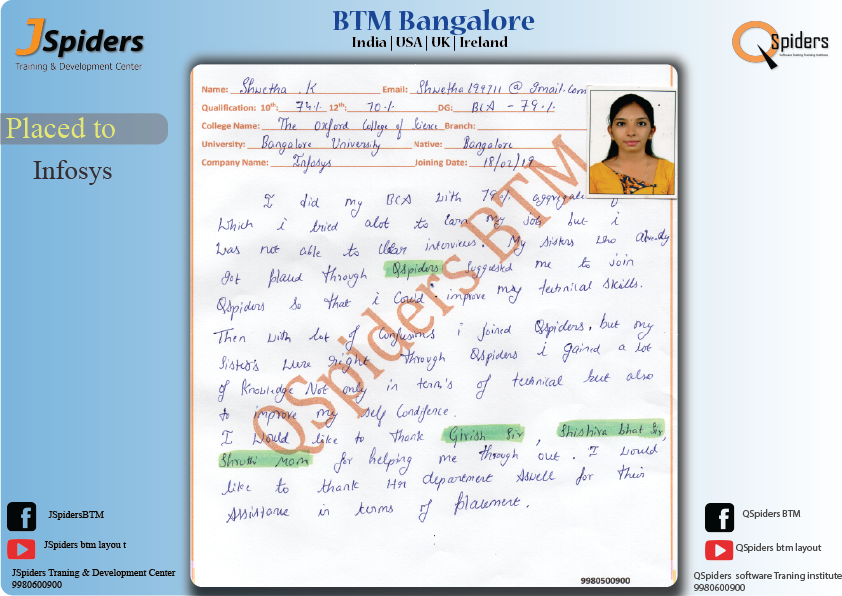 BTM Bangalore
India | USA | UK | Ireland
JSpiders
Training & Development Center
QSpiders
Software Testing Training Institute
Placed to
Infosys
Name: Shwetha .K Email: Shwetha199711@gmail.com
Qualification: 10th: 74% 12th: 70% DG: BCA - 79%
College Name: The Oxford College of Science Branch:
University: Bangalore University Native: Bangalore
Company Name: Infosys Joining Date: 18/02/19
I did my BCA with 79% aggregate
which i tried alot to earn my job but i
was not able to clear interviews. My sisters who already
got placed through Qspiders suggested me to join
Qspiders so that i could improve my technical skills.
Then with lot of confusions i joined Qspiders, but my
sister's were right through Qspiders i gained a lot
of knowledge Not only in term's of technical but also
to improve my self Confidence.
I would like to thank Girish Sir, Shishira bhat Sir,
Shruthi Mam for helping me through out. I would
like to thank Hr department Aswell for their
Assistance in terms of placement.
QSpiders BTM
9980500900
JSpidersBTM
JSpiders btm layou t
JSpiders Traning & Development Center
9980600900
QSpiders BTM
QSpiders btm layout
QSpiders software Traning institute
9980600900